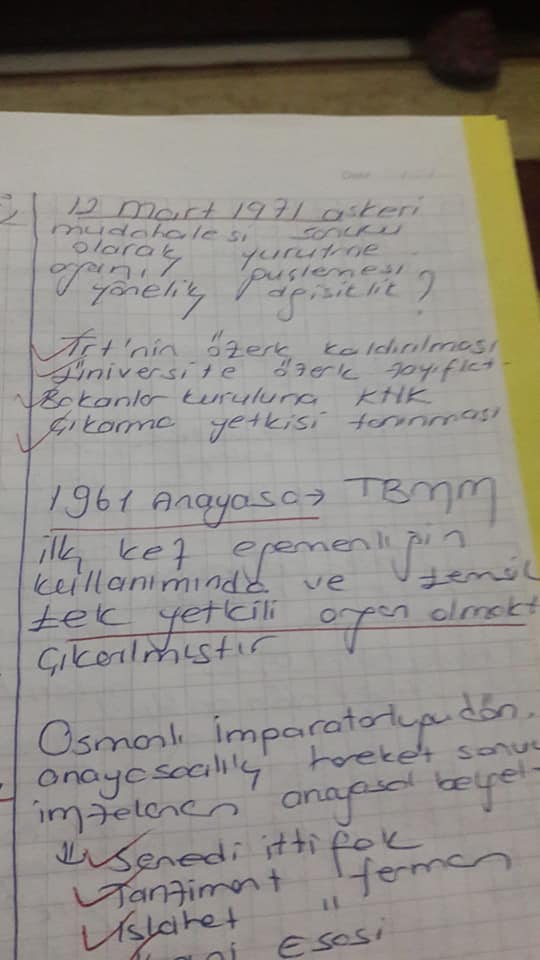 12 mart 1971 askeri
müdahalesi sonucu
olarak yürütme
organı güçlemesi
yönelik değişiklik?
Trt'nin özerk kaldırılması
Üniversite özerk zayıflat.
Bakanlar kuruluna KHK
Çıkarma yetkisi tanınması
1961 Anayasa → TBMM
ilk kez egemenliğin
kullanımında ve temsil
tek yetkili organ olmakt
Çıkarılmıştır
Osmanlı imparatorluğu dön.
anayasacılık hareket sonuc
imzelenen anayasal belgel
Senedi ittifak
Tanzimant ferman
Islahet "
Esasi